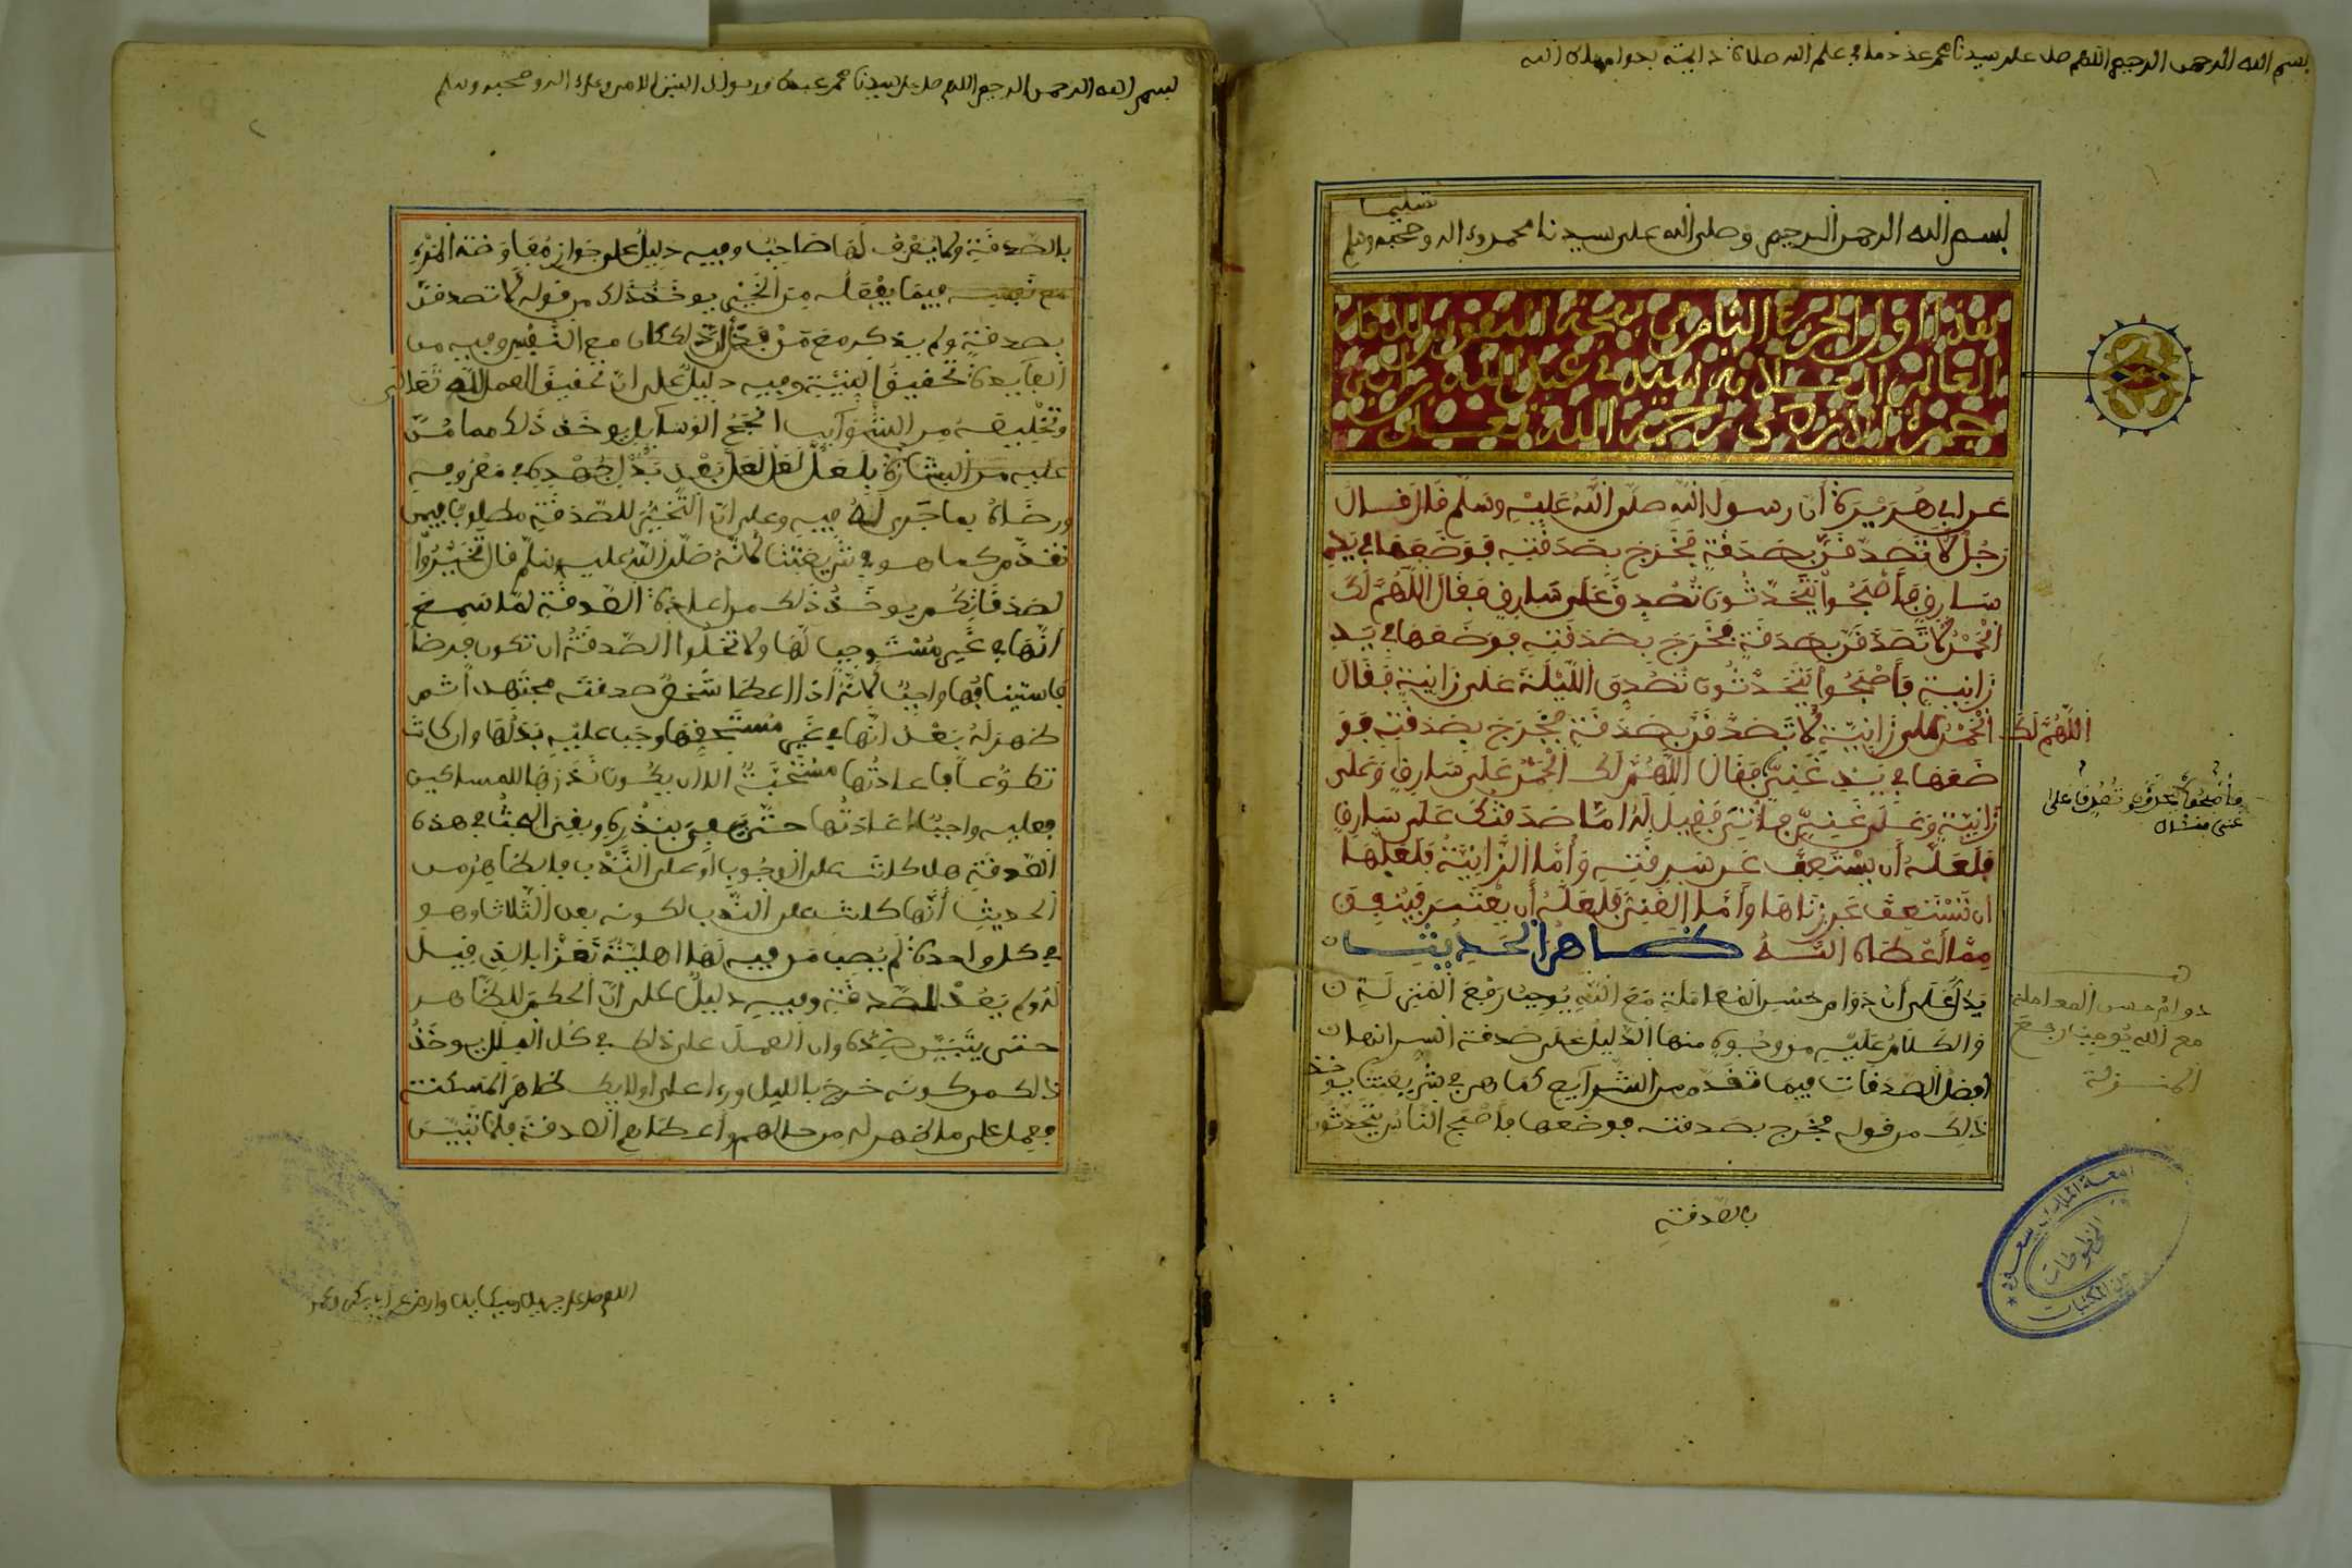 بسم الله الرحمن الرحيم اللهم صل على سيدنا محمد عدد ما في علم الله صلاة دائمة بدوام ملك الله
بسم الله الرحمن الرحيم وصلى الله على سيدنا محمد وءاله وصحبه وسلم
تسليما
هذا أول الجزء الثامن من بهجة النفوس للإمام
العالم العلامة سيدي عبد الله بن أبي
جمرة الأزدي رحمه الله تعالى
عن أبي هريرة أن رسول الله صلى الله عليه وسلم قال قال
رجل لأتصدقن بصدقة فخرج بصدقته فوضعها في يد
سارق فأصبحوا يتحدثون تصدق على سارق فقال اللهم لك
الحمد لأتصدقن بصدقة فخرج بصدقته فوضعها في يد
زانية فأصبحوا يتحدثون تصدق الليلة على زانية فقال
اللهم لك الحمد على زانية لأتصدقن بصدقة فخرج بصدقته فو
ضعها في يد غني فقال اللهم لك الحمد على سارق وعلى
فأصبحوا يتحدثون تصدق على
غني فقال
زانية وعلى غني فأتي فقيل له أما صدقتك على سارق
فلعله أن يستعف عن سرقته وأما الزانية فلعلها
أن تستعف عن زناها وأما الغني فلعله أن يعتبر فينفق
مما أعطاه الله ظاهر الحديث
يدل على أن دوام حسن المعاملة مع الله يوجب رفع المنزلة
دوام حسن المعاملة
مع الله يوجب رفع
المنزلة
والكلام عليه من وجوه منها الدليل على صدقة السر انها
أفضل الصدقات فيما تقدم من الشرايع كما هي في شريعتنا يوخذ
ذلك من قوله فخرج بصدقته فوضعها فأصبح الناس يتحدثون
بالصدقة
جامعة الملك سعود
المخطوطات
المكتبات
بسم الله الرحمن الرحيم اللهم صل على سيدنا محمد عبدك ورسولك النبي الامي وعلى اله وصحبه وسلم
بالصدقة ولا يعرف لها صاحب وفيه دليل على جواز مفاوضة المرء
مع نفسه فيما يفعله من الخير يوخذ ذلك من قوله لأتصدقن
بصدقة ولم يذكر مع من فدل أن ذلك كان مع النفس وفيه من
الفايدة تحقيق النية وفيه دليل على أن تحقيق العمل لله تعالى
وتخليصه من الشوايب أنجح الوسايل يوخذ ذلك مما من
عليه من البشارة بلعل لعل لعل بعد بذل جهده في معروفه
ورضاه بما جرى له فيه وعلى أن التخير للصدقة مطلوب فيمن
تقدم كما هو في شريعتنا لأنه صلى الله عليه وسلم قال تخيروا
لصدقاتكم يوخذ ذلك من إعادة الصدقة لما سمع
أنها في غير مستوجب لها ولا تخلوا الصدقة أن تكون فرضا
فاستينافها واجب لأنه إذا أعطا شخص صدقته مجتهدا ثم
ظهر له بعد أنها في غير مستحقها وجب عليه بدلها وإن كانت
تطوعا فإعادتها مستحبة إلا أن يكون نذرها للمساكين
فعليه واجب إعادتها حتى يفي بنذره وبقي البحث في هذه
الصدقة هل كانت على الوجوب أو على الندب فالظاهر من
الحديث أنها كانت على الندب لكونه بعد الثلاث وهو
في كل واحدة لم يصب من فيه لها أهلية تعزا بالذي قيل
له ولم يعد الصدقة وفيه دليل على أن الحكم للظاهر
حتى يتبين ضده وان العمل على ذلك في كل الملل يوخذ
ذالك من كونه خرج بالليل ورءا على أولايك ظاهر المسكنة
فعمل على ما ظهر له من حالهم وأعطاهم الصدقة فلما تبين